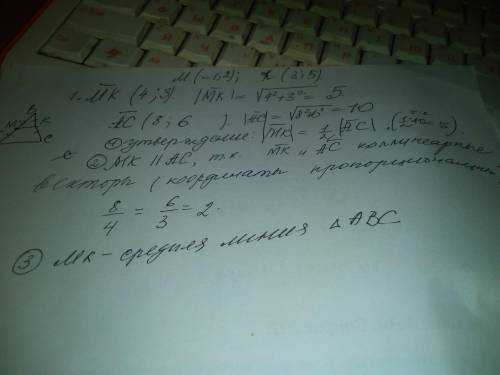 M(-1;2); K(3;5)
1. MK (4;3). |MK| = √4²+3² = 5
AC (8;6). |AC| = √8²+6² = 10
① утверждение: |MK| = 1/2 |AC|. (1/2·10 = 5).
② MK || AC, т.к. MK и AC коллинеарные
векторы (координаты пропорциональны
8/4 = 6/3 = 2.
③ MK - средняя линия △ ABC
B
M K
C